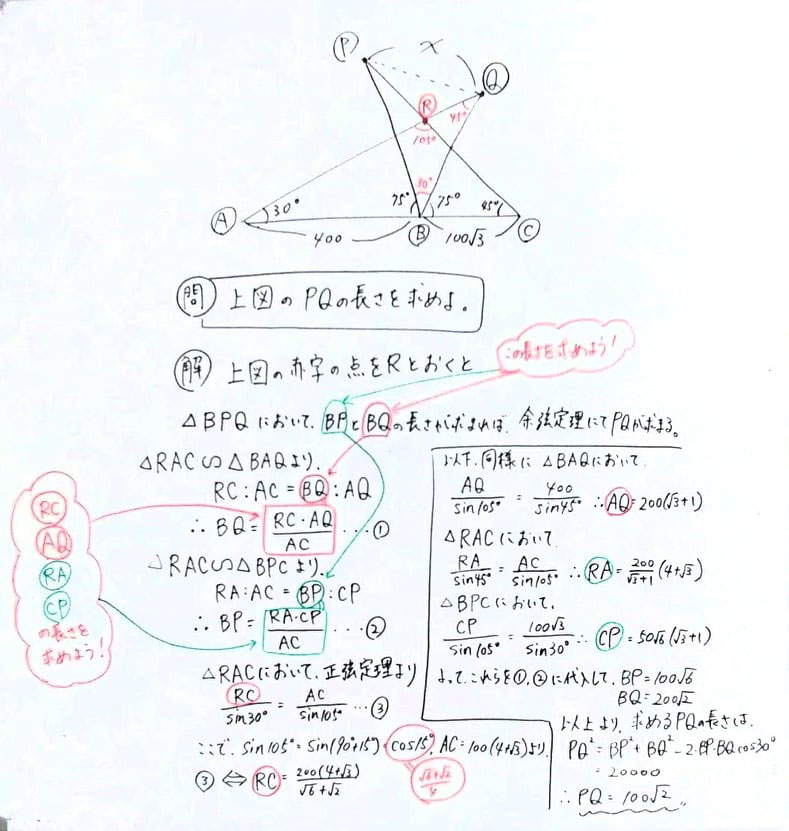 P
x
Q
R
45°
105°
30°
30°
75°
75°
45°
A
400
B
100√3
C
問 上図のPQの長さを求めよ。
解 上図の赤字の点をRとおくと
この長さを求めよう!
△BPQにおいて、BPとBQの長さが求まれば、余弦定理にてPQが求まる。
△RAC∽△BAQより、
RC:AC=BQ:AQ
∴ BQ= RC・AQ/AC …①
△RAC∽△BPCより、
RA:AC=BP:CP
∴ BP= RA・CP/AC …②
RC
AQ
RA
CP
の長さを
求めよう!
△RACにおいて、正弦定理より
RC/sin30° = AC/sin105° …③
ここで、sin105°=sin(90°+15°)=cos15°, AC=100(4+√3)より、
③ ⇔ RC= 200(4+√3)/√6+√2
√6+√2/4
以下、同様に△BAQにおいて、
AQ/sin105° = 400/sin45° ∴AQ=200(√3+1)
△RACにおいて
RA/sin45° = AC/sin105° ∴RA= 200/√3+1 (4+√3)
△BPCにおいて、
CP/sin105° = 100√3/sin30° ∴CP=50√6(√3+1)
よって、これらを①,②に代入して、BP=100√6
BQ=200√2
以上より、求めるPQの長さは、
PQ²=BP²+BQ²-2・BP・BQcos30°
=20000
∴ PQ=100√2